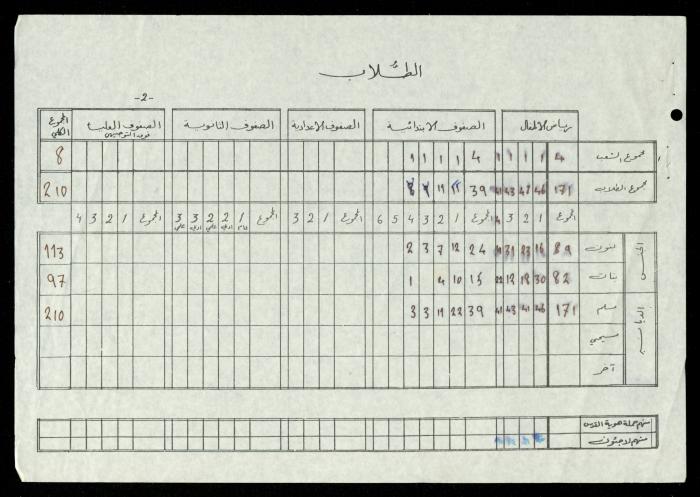 الطلاب
-2-
رياض الأطفال الصفوف الابتدائية الصفوف الاعدادية الصفوف الثانوية الصفوف العليا فوق التوجيهي المجموع الكلي
مجموع الشعب 4 1 1 1 1 4 1 1 1 1 8
مجموع الطلاب 171 46 41 43 41 39 22 11 210
المجموع 1 2 3 4 المجموع 1 2 3 4 5 6 المجموع 1 2 3 المجموع 1 2 2 3 3 المجموع 1 2 3 4
عام ادبي علمي ادبي علمي
الجنس
بنون 89 16 23 31 24 12 7 3 2 113
بنات 82 30 18 12 22 15 10 4 1 97
الديانة
مسلم 171 46 41 43 41 39 22 11 3 3 210
مسيحي
آخر
منهم حملة هوية القدس
منهم لاجئون